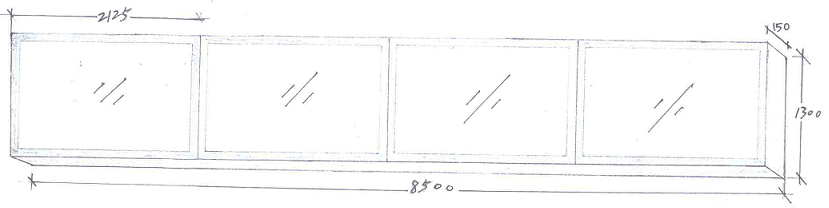 2125
150
1300
8500